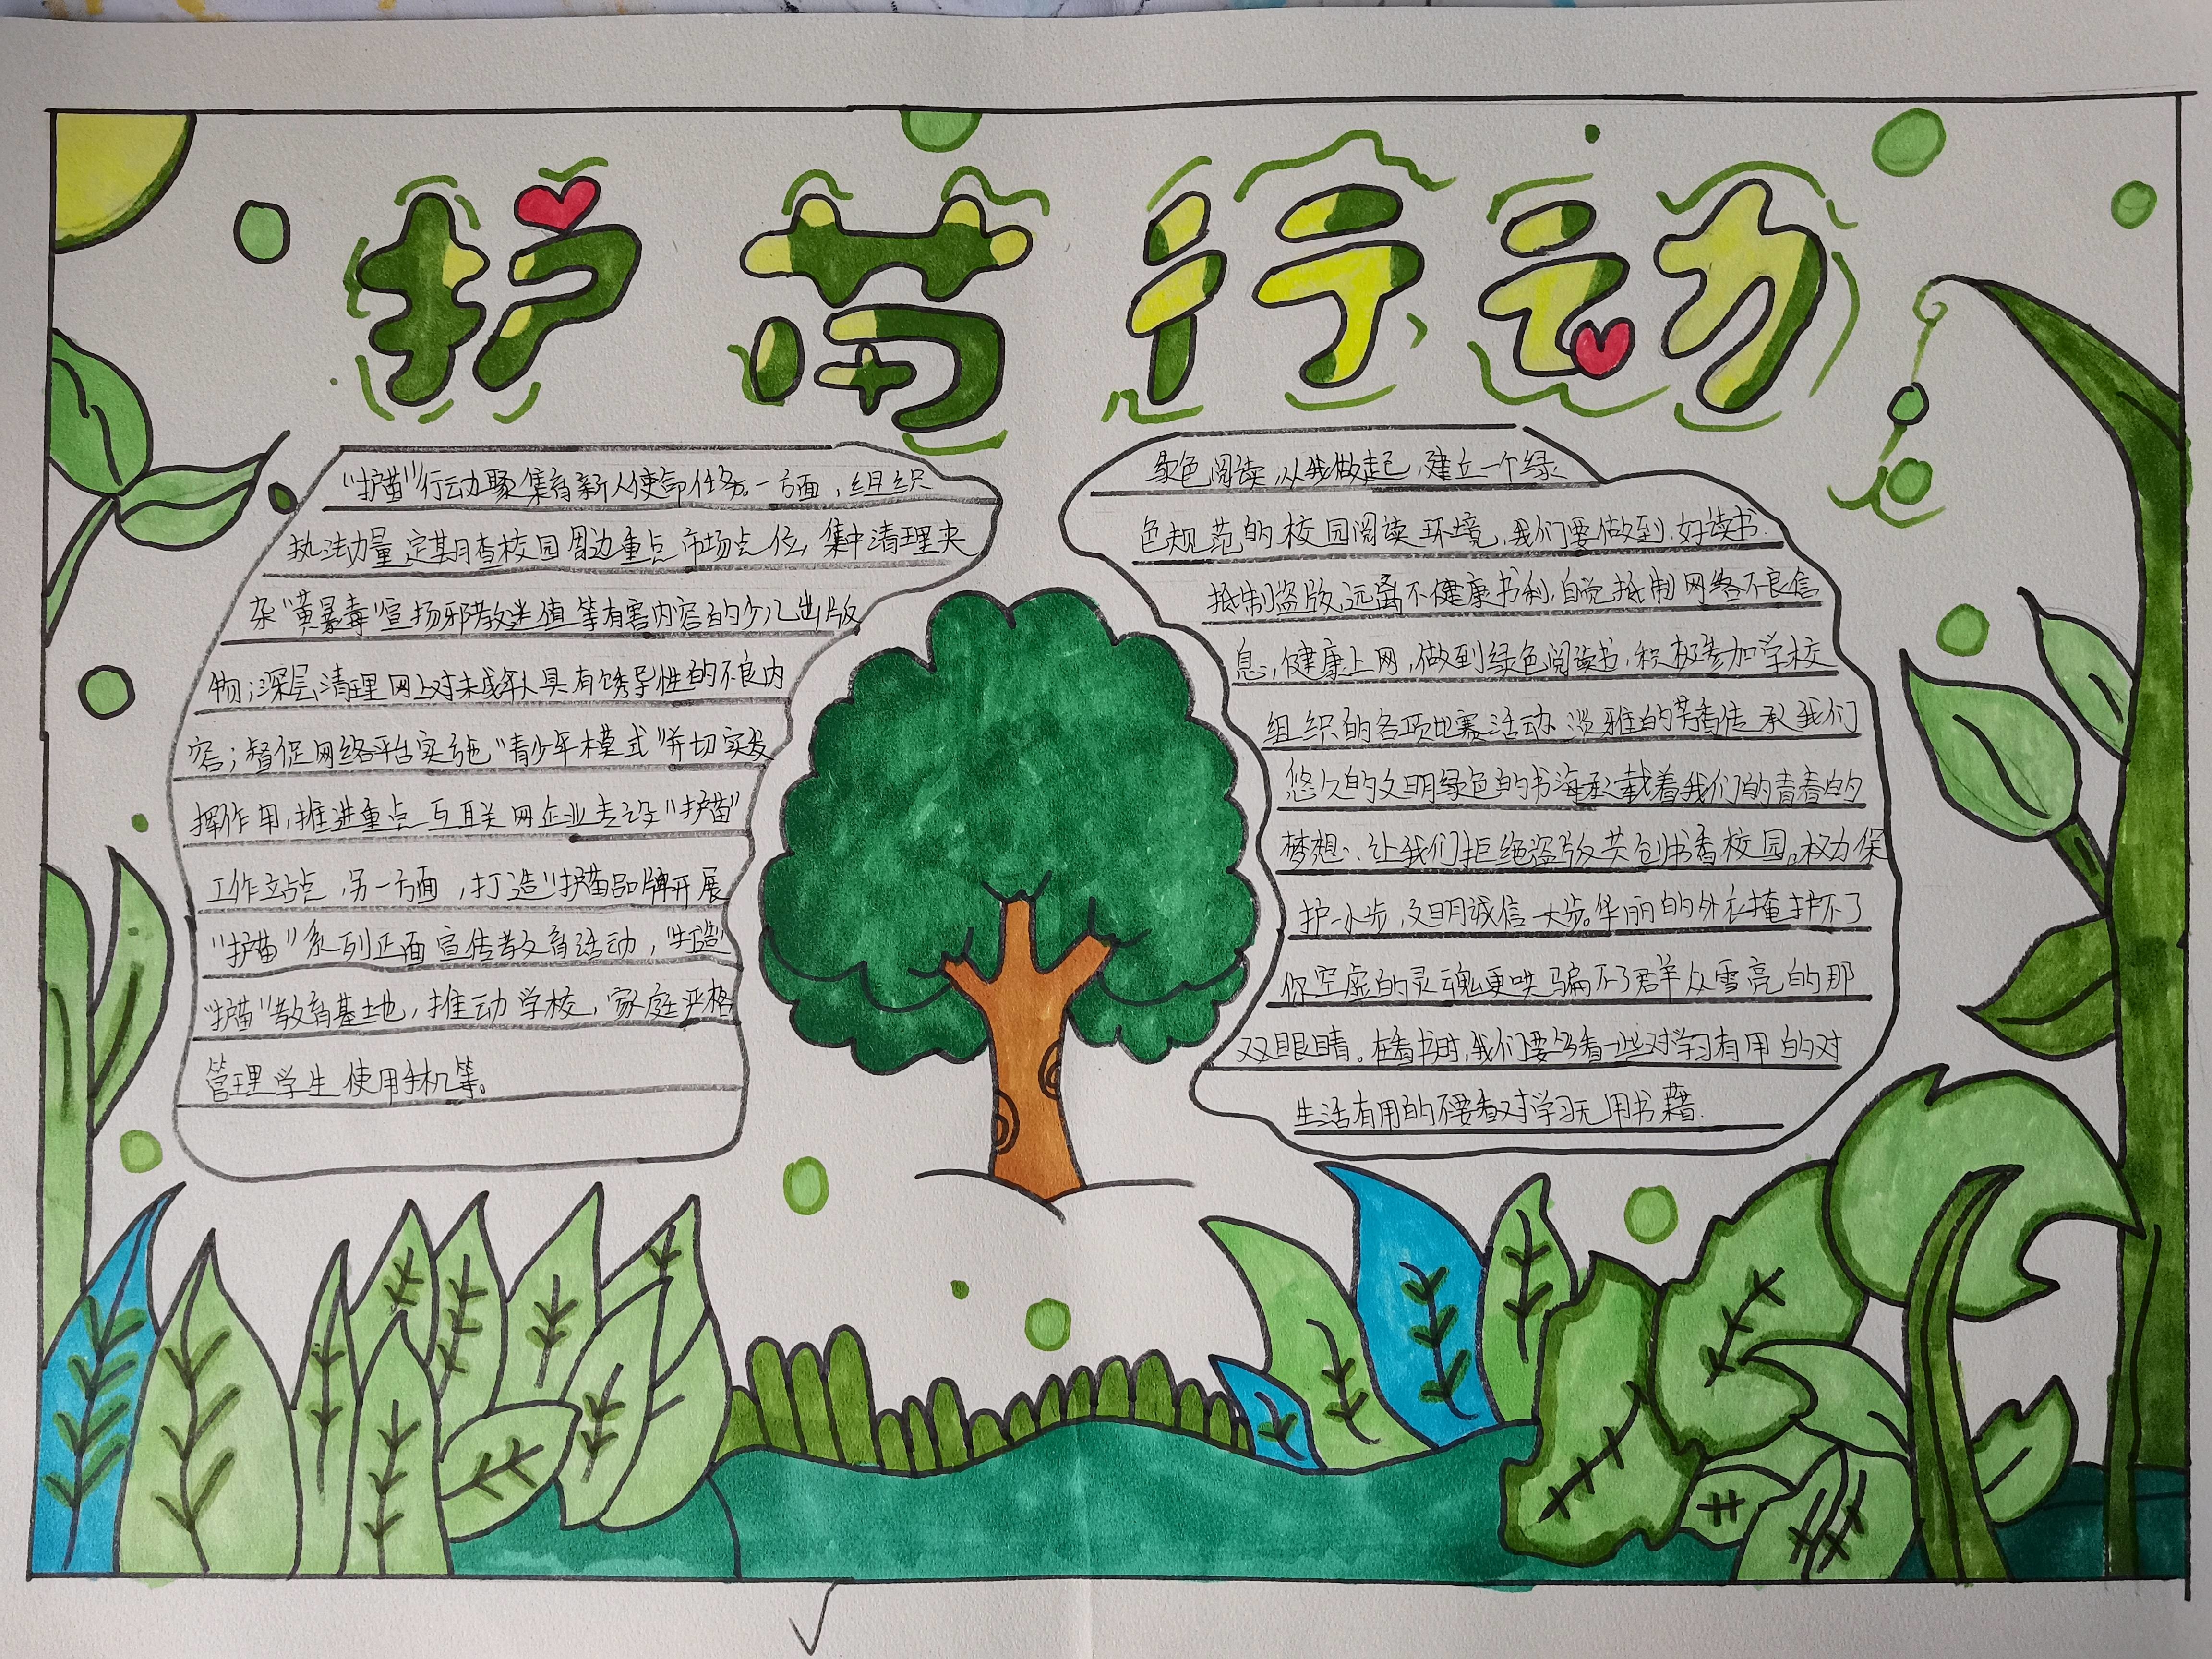 护苗行动
“护苗”行动聚集育新人使命任务。一方面，组织
执法力量，定期查校园周边重点市场点位，集中清理夹
杂“黄暴毒”宣扬邪教迷值等有害内容的少儿出版
物；深层清理网上对未成年人具有诱导性的不良内
容；督促网络平台实施“青少年模式”并切实发
挥作用，推进重点互联网企业去设“护苗”
工作立站点，另一方面，打造“护苗品牌开展
“护苗”系列正面宣传教育活动，
“护苗”教育基地，推动学校，家庭严格
管理学生使用手机等。
绿色阅读，从我做起，建立一个绿
色规范的校园阅读环境，我们要做到.好读书.
抵制盗版，远离不健康书利，自觉抵制网络不良信
息，健康上网，做到绿色阅读书，积极参加学校
组织的各项比赛活动.淡雅的芳香传承我们
悠久的文明绿色的书海承载着我们的青春的
梦想、让我们拒绝盗版共创书香校园。权力保
护一小步，文明诚信一大步。华丽的外衣掩护不了
你空虚的灵魂更哄骗不了群众雪亮的那
双眼睛。在看书时，我们要多看一些对学习有用的对
生活有用的不要看对学习无用书籍.